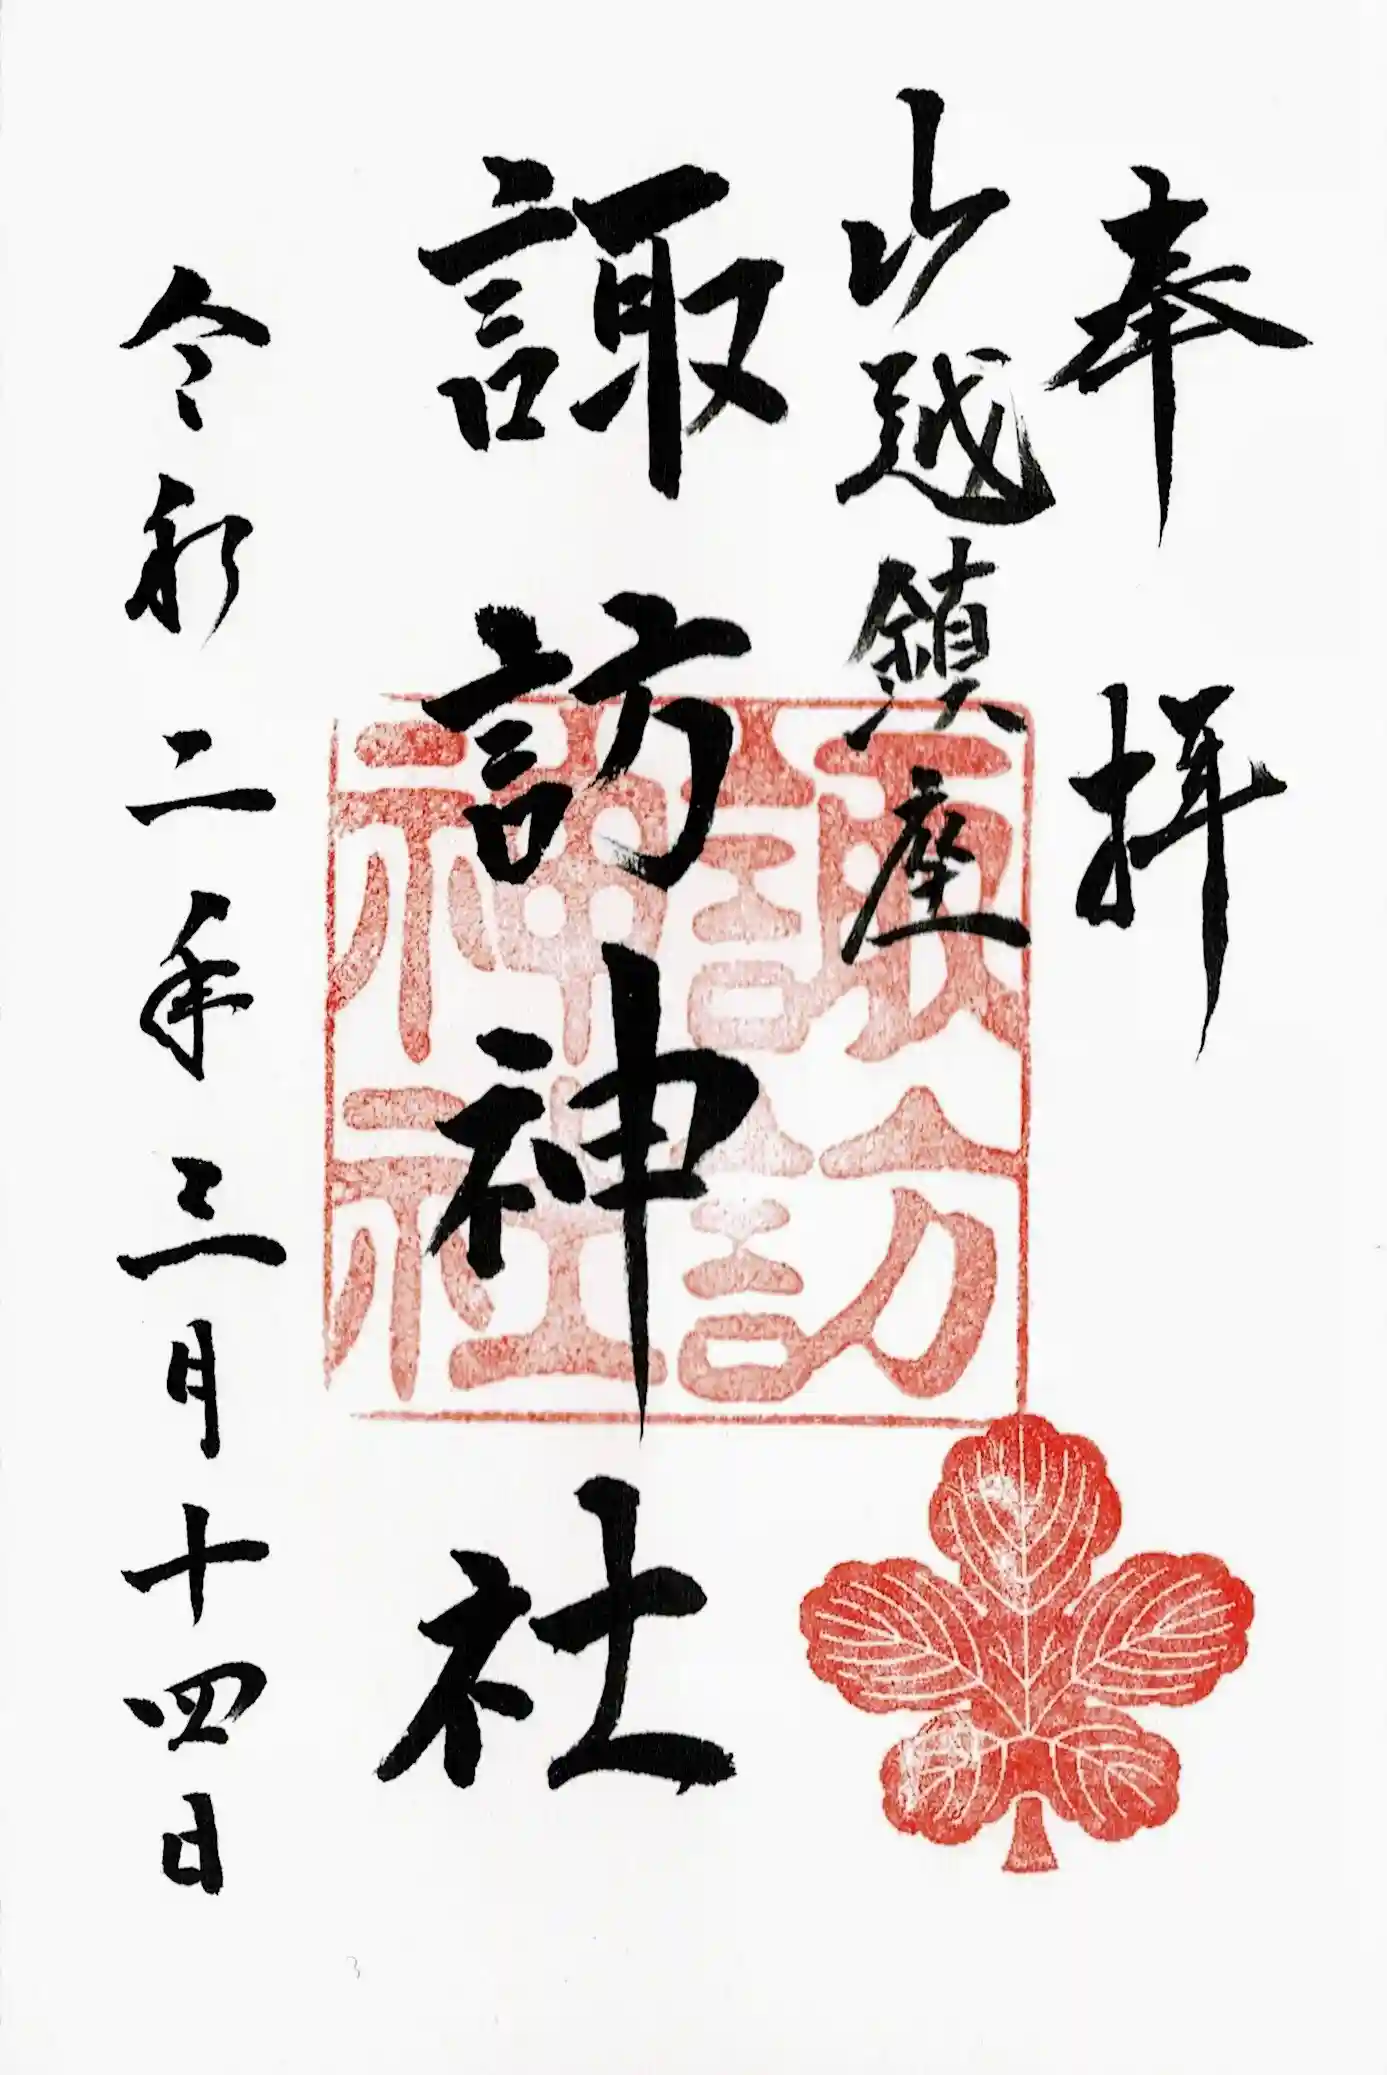 奉拝
山越鎮座
諏訪神社
諏訪神社
令和二年三月十四日